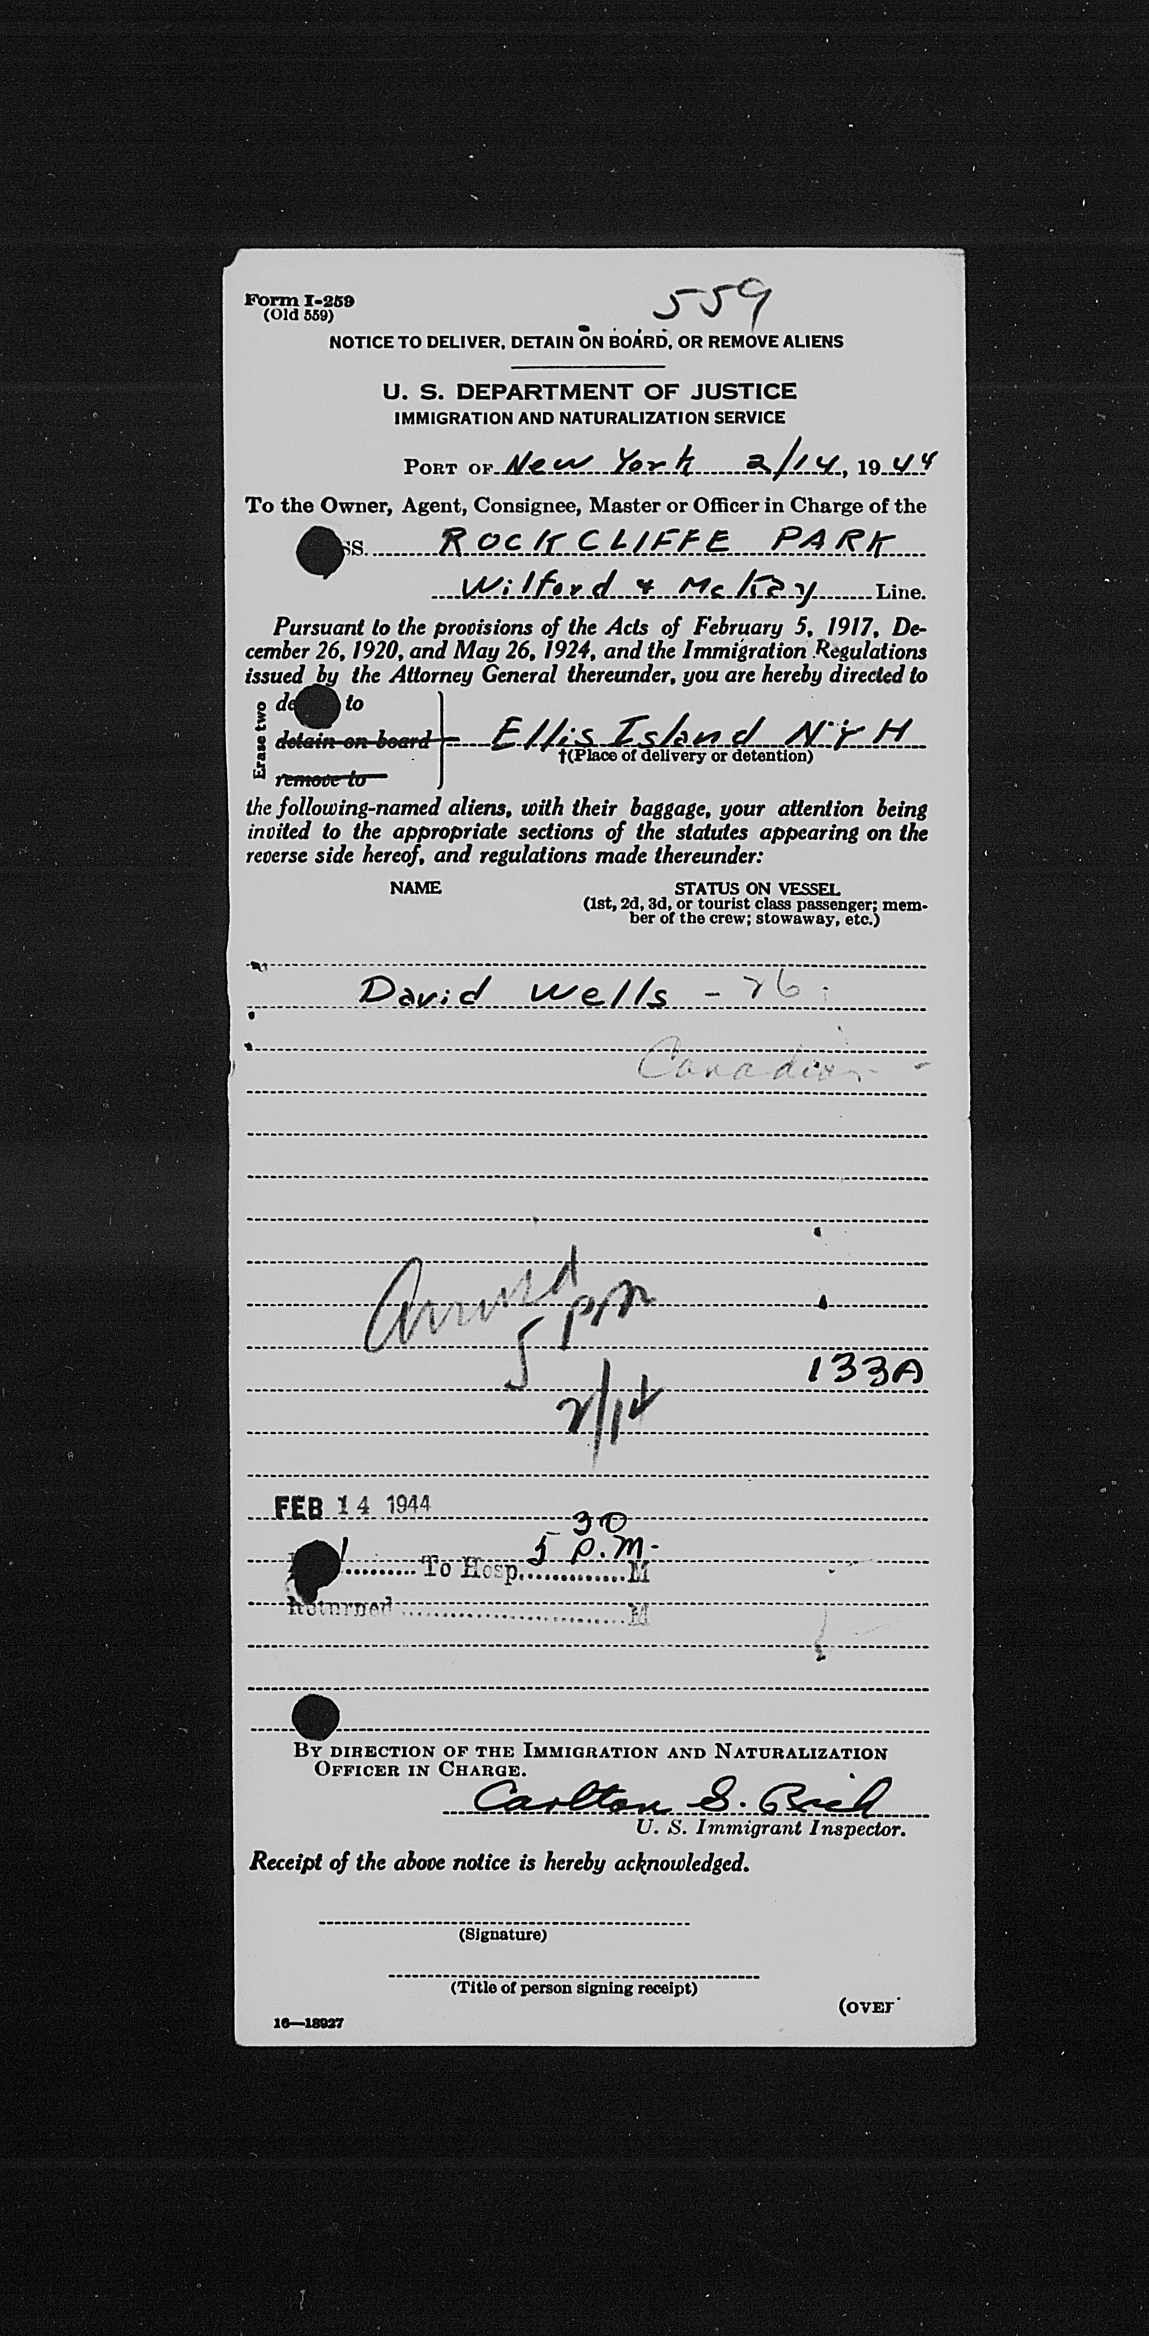 Form I-259
(Old 559)
559
NOTICE TO DELIVER, DETAIN ON BOARD, OR REMOVE ALIENS
U. S. DEPARTMENT OF JUSTICE
IMMIGRATION AND NATURALIZATION SERVICE
PORT OF New York 2/14, 1944
To the Owner, Agent, Consignee, Master or Officer in Charge of the
SS. ROCKCLIFFE PARK
Wilford & McKay Line.
Pursuant to the provisions of the Acts of February 5, 1917, De-
cember 26, 1920, and May 26, 1924, and the Immigration Regulations
issued by the Attorney General thereunder, you are hereby directed to
Erase two
to
detain on board Ellis Island N.Y.H
†(Place of delivery or detention)
remove to
the following-named aliens, with their baggage, your attention being
invited to the appropriate sections of the statutes appearing on the
reverse side hereof, and regulations made thereunder:
NAME STATUS ON VESSEL
(1st, 2d, 3d, or tourist class passenger; mem-
ber of the crew; stowaway, etc.)
David Wells - 26
Canadian -
Arrived
5 pm
133A
2/14
FEB 14 1944
5 30 P.M.
To Hosp. M
Returned M
BY DIRECTION OF THE IMMIGRATION AND NATURALIZATION
OFFICER IN CHARGE.
Carlton S. Rich
U. S. Immigrant Inspector.
Receipt of the above notice is hereby acknowledged.
(Signature)
(Title of person signing receipt)
(OVER
16—18927